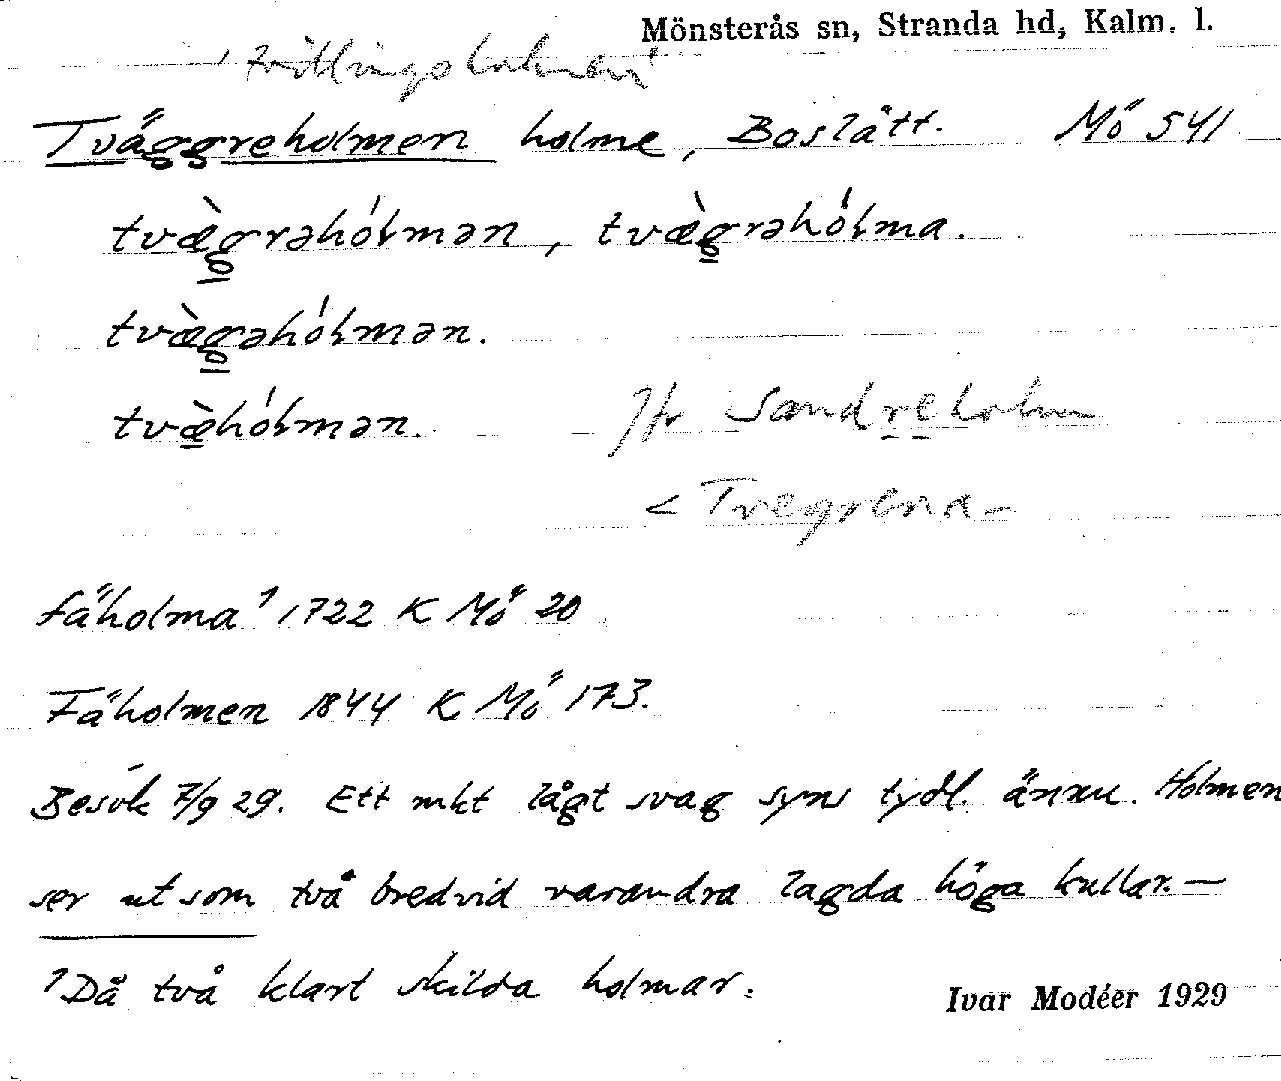 Mönsterås sn, Stranda hd, Kalm. l.
'Tvillingsholmen'
Tväggreholmen holme, Boslätt. Mö 541
tvæ̀grəhólmən, tvæ̀grəhólma.
tvæ̀gəhólmən.
tvæ̀hólmən. Jfr Sandreholm
< Tvegrena-
fäholma¹ 1722 K Mö 20
Fäholmen 1844 K Mö 173.
Besök 7/9 29. Ett mkt lågt svag syns tydl. ännu. Holmen
ser ut som två bredvid varandra lagda höga kullar. —
¹Då två klart skilda holmar.
Ivar Modéer 1929